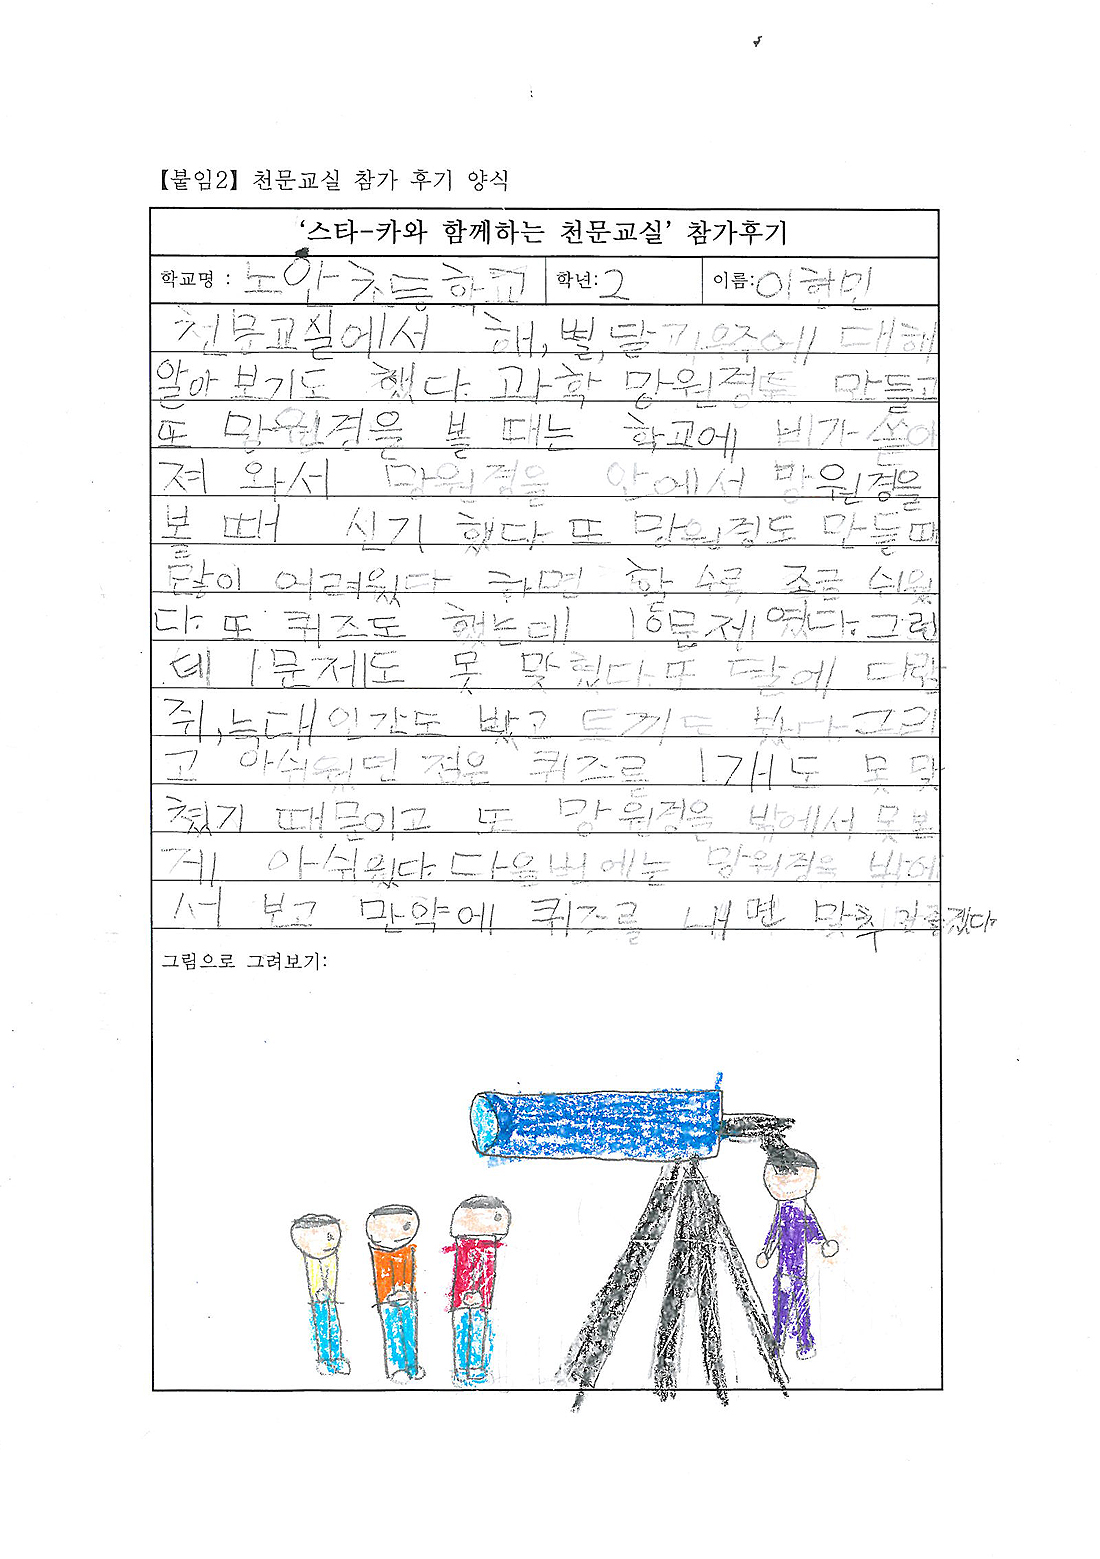 【붙임2】 천문교실 참가 후기 양식
‘스타-카와 함께하는 천문교실’ 참가후기
학교명 : 노안초등학교 학년:2 이름:이현민
천문교실에서 해,별,달 까우주에 대해
알아보기도 했다. 과학 망원경도 만들고
또 망원경을 볼 때는 학교에 비가 쏟아
져 와서 망원경을 안에서 망원경을
볼 때 신기 했다. 또 망원경도 만들때
많이 어려웠다 하면 할 수록 조금 쉬웠
다. 또 퀴즈도 했는데 15문제였다. 그런
데 1문제도 못 맞혔다. 또 달에 다람
쥐,늑대인간도 봤고 토끼도 봤다. 그리
고 아쉬웠던 점은 퀴즈를 1개도 못 맞
쳤기 때문이고 또 망원경을 밖에서 못본
게 아쉬웠다. 다음번에는 망원경을 밖에
서 보고 만약에 퀴즈를 내면 맞추
그림으로 그려보기: